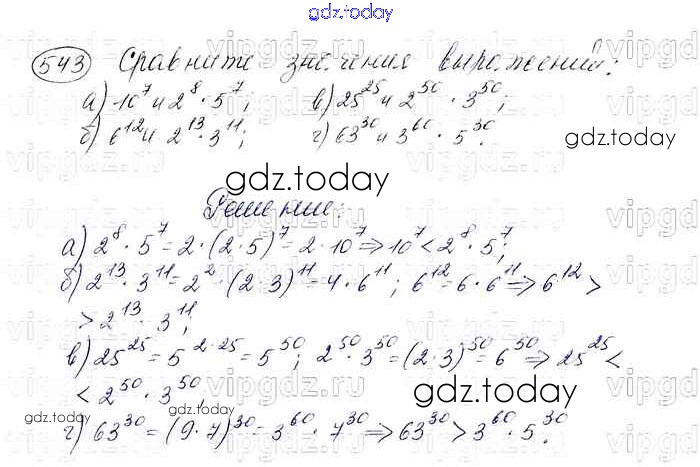 gdz.today
543 Сравните значения выражений:
а) 10⁷ и 2⁸ · 5⁷; в) 25²⁵ и 2⁵⁰ · 3⁵⁰;
б) 6¹² и 2¹³ · 3¹¹; г) 63³⁰ и 3⁶⁰ · 5³⁰.
gdz.today
gdz.today
Решение:
а) 2⁸ · 5⁷ = 2 · (2 · 5)⁷ = 2 · 10⁷ ⇒ 10⁷ < 2⁸ · 5⁷;
б) 2¹³ · 3¹¹ = 2² · (2 · 3)¹¹ = 4 · 6¹¹; 6¹² = 6 · 6¹¹ ⇒ 6¹² >
> 2¹³ · 3¹¹;
в) 25²⁵ = 5²·²⁵ = 5⁵⁰; 2⁵⁰ · 3⁵⁰ = (2 · 3)⁵⁰ = 6⁵⁰ ⇒ 25²⁵ <
< 2⁵⁰ · 3⁵⁰.
gdz.today
gdz.today
gdz.today
г) 63³⁰ = (9 · 7)³⁰ = 3⁶⁰ · 7³⁰ ⇒ 63³⁰ > 3⁶⁰ · 5³⁰.